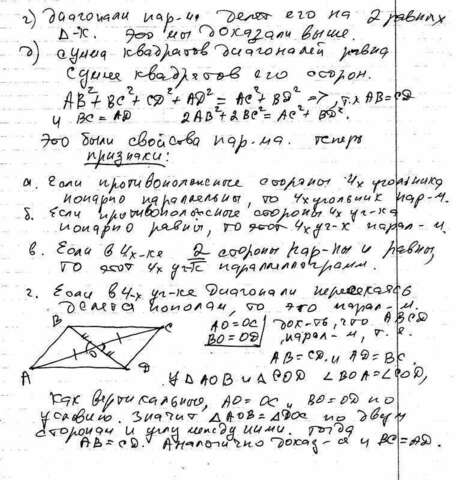 г) диагонали пар-ма делят его на 2 равных
Δ-к. Это мы доказали выше.
д) сумма квадратов диагоналей равна
сумме квадратов его сторон.
AB² + BC² + CD² + AD² = AC² + BD² => , т.к AB=CD
и BC = AD 2AB² + 2BC² = AC² + BD².
Это были свойства пар-ма. теперь
признаки:
а. Если противоположные стороны 4х угольника
попарно параллельны, то 4х угольник пар-м.
б. Если противоположные стороны 4х уг-ка
попарно равны, то этот 4х уг-к парал-м.
в. Если в 4х-ке 2 стороны пар-ны и равны,
то этот 4х уг-к параллелограмм.
г. Если в 4х уг-ке диагонали пересекаясь
делятся пополам, то это парал-м.
B C AO = OC док-ть, что ABCD
O BO = OD парал-м, т.е.
A D AB = CD. и AD = BC.
У ΔAOB и ΔCOD ∠BOA = ∠COD,
как вертикальные, AO = OC, BO = OD по
условию. Значит ΔAOB = ΔDOC по двум
сторонам и углу между ними. Тогда
AB = CD. Аналогично доказ-ся и BC = AD.